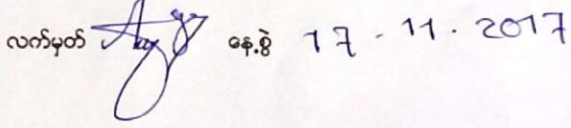 လက်မှတ် နေ့စွဲ 17 - 11 . 2017